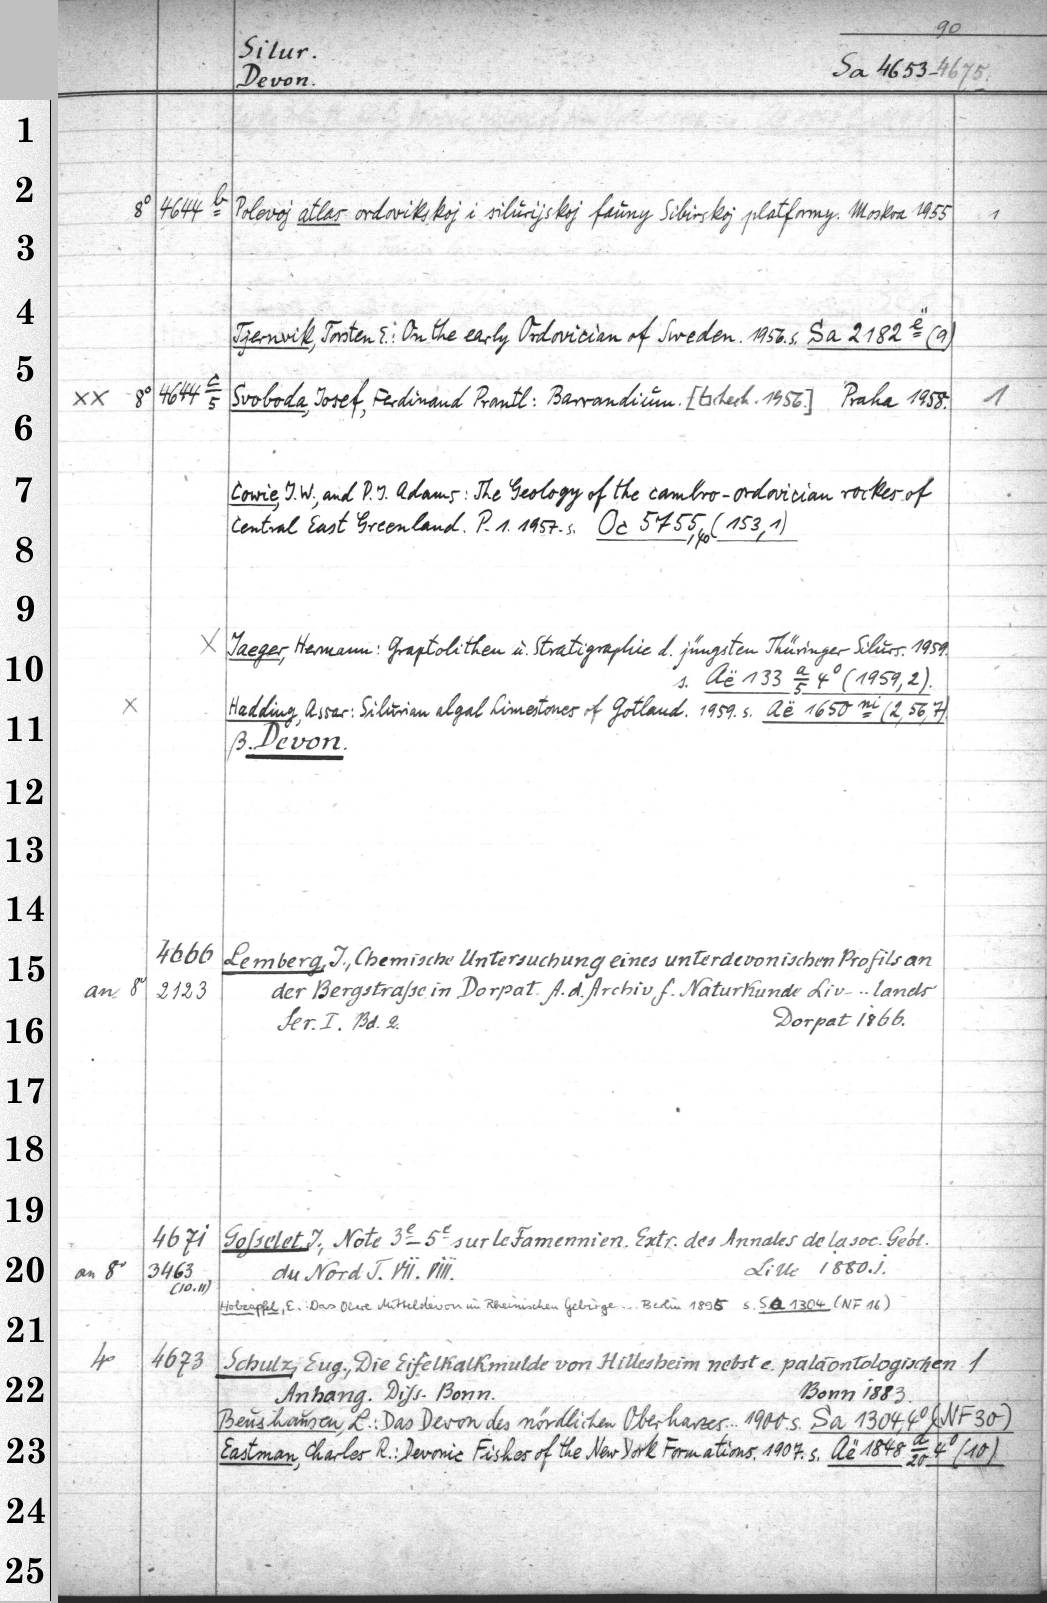 90
Silur.
Devon.
Sa 4653-4675.
1
2
8° 4644 b Polevoj atlas ordovikskoj i silurijskoj fauny Sibirskoj platformy. Moskva 1955 1
3
4
Tjernvik, Torsten E.: On the early Ordovician of Sweden. 1956. s. Sa 2182 ë (9)
5
xx 8° 4644 c/5 Svoboda, Josef, Ferdinand Prantl: Barrandium. [tschech. 1956.] Praha 1958. 1
6
7
Cowie, J.W., and P.J. Adams: The Geology of the cambro-ordovician rockes of
Central East Greenland. P. 1. 1957. s. Oc 5755,40 (153,1)
8
9
x Jaeger, Hermann: Graptolithen u. Stratigraphie d. jüngsten Thüringer Silurs. 1959.
10
s. Aë 133 a/5 4° (1959,2).
x Hadding, Assar: Silurian algal Limestones of Gotland. 1959. s. Aë 1650 ni (2,56,7)
11
β. Devon.
12
13
14
4666 Lemberg, J., Chemische Untersuchung eines unterdevonischen Profils an
15
an 8° 2123 der Bergstraße in Dorpat. A. d. Archiv f. Naturkunde Liv- .. lands
16
Ser. I. Bd. 2. Dorpat 1866.
17
18
19
4671 Gosselet, J., Note 3e-5e sur le Famennien. Extr. des Annales de la soc. Géol.
20
an 8° 3463 (10.11) du Nord T. VII. VIII. Lille 1880.
Holzapfel, E.: Das Obere Mitteldevon im Rheinischen Gebirge... Berlin 1895 s. Sa 1304 (NF 16)
21
4° 4673 Schulz, Eug., Die Eifelkalkmulde von Hillesheim nebst e. paläontologischen 1
22
Anhang. Diss. Bonn. Bonn 1883.
Beushausen, L.: Das Devon des nördlichen Oberharzes... 1900 s. Sa 1304, 4° (NF 30)
23
Eastman, Charles R.: Devonic Fishes of the New York Formations. 1907. s. Aë 1848 d/20 4° (10)
24
25